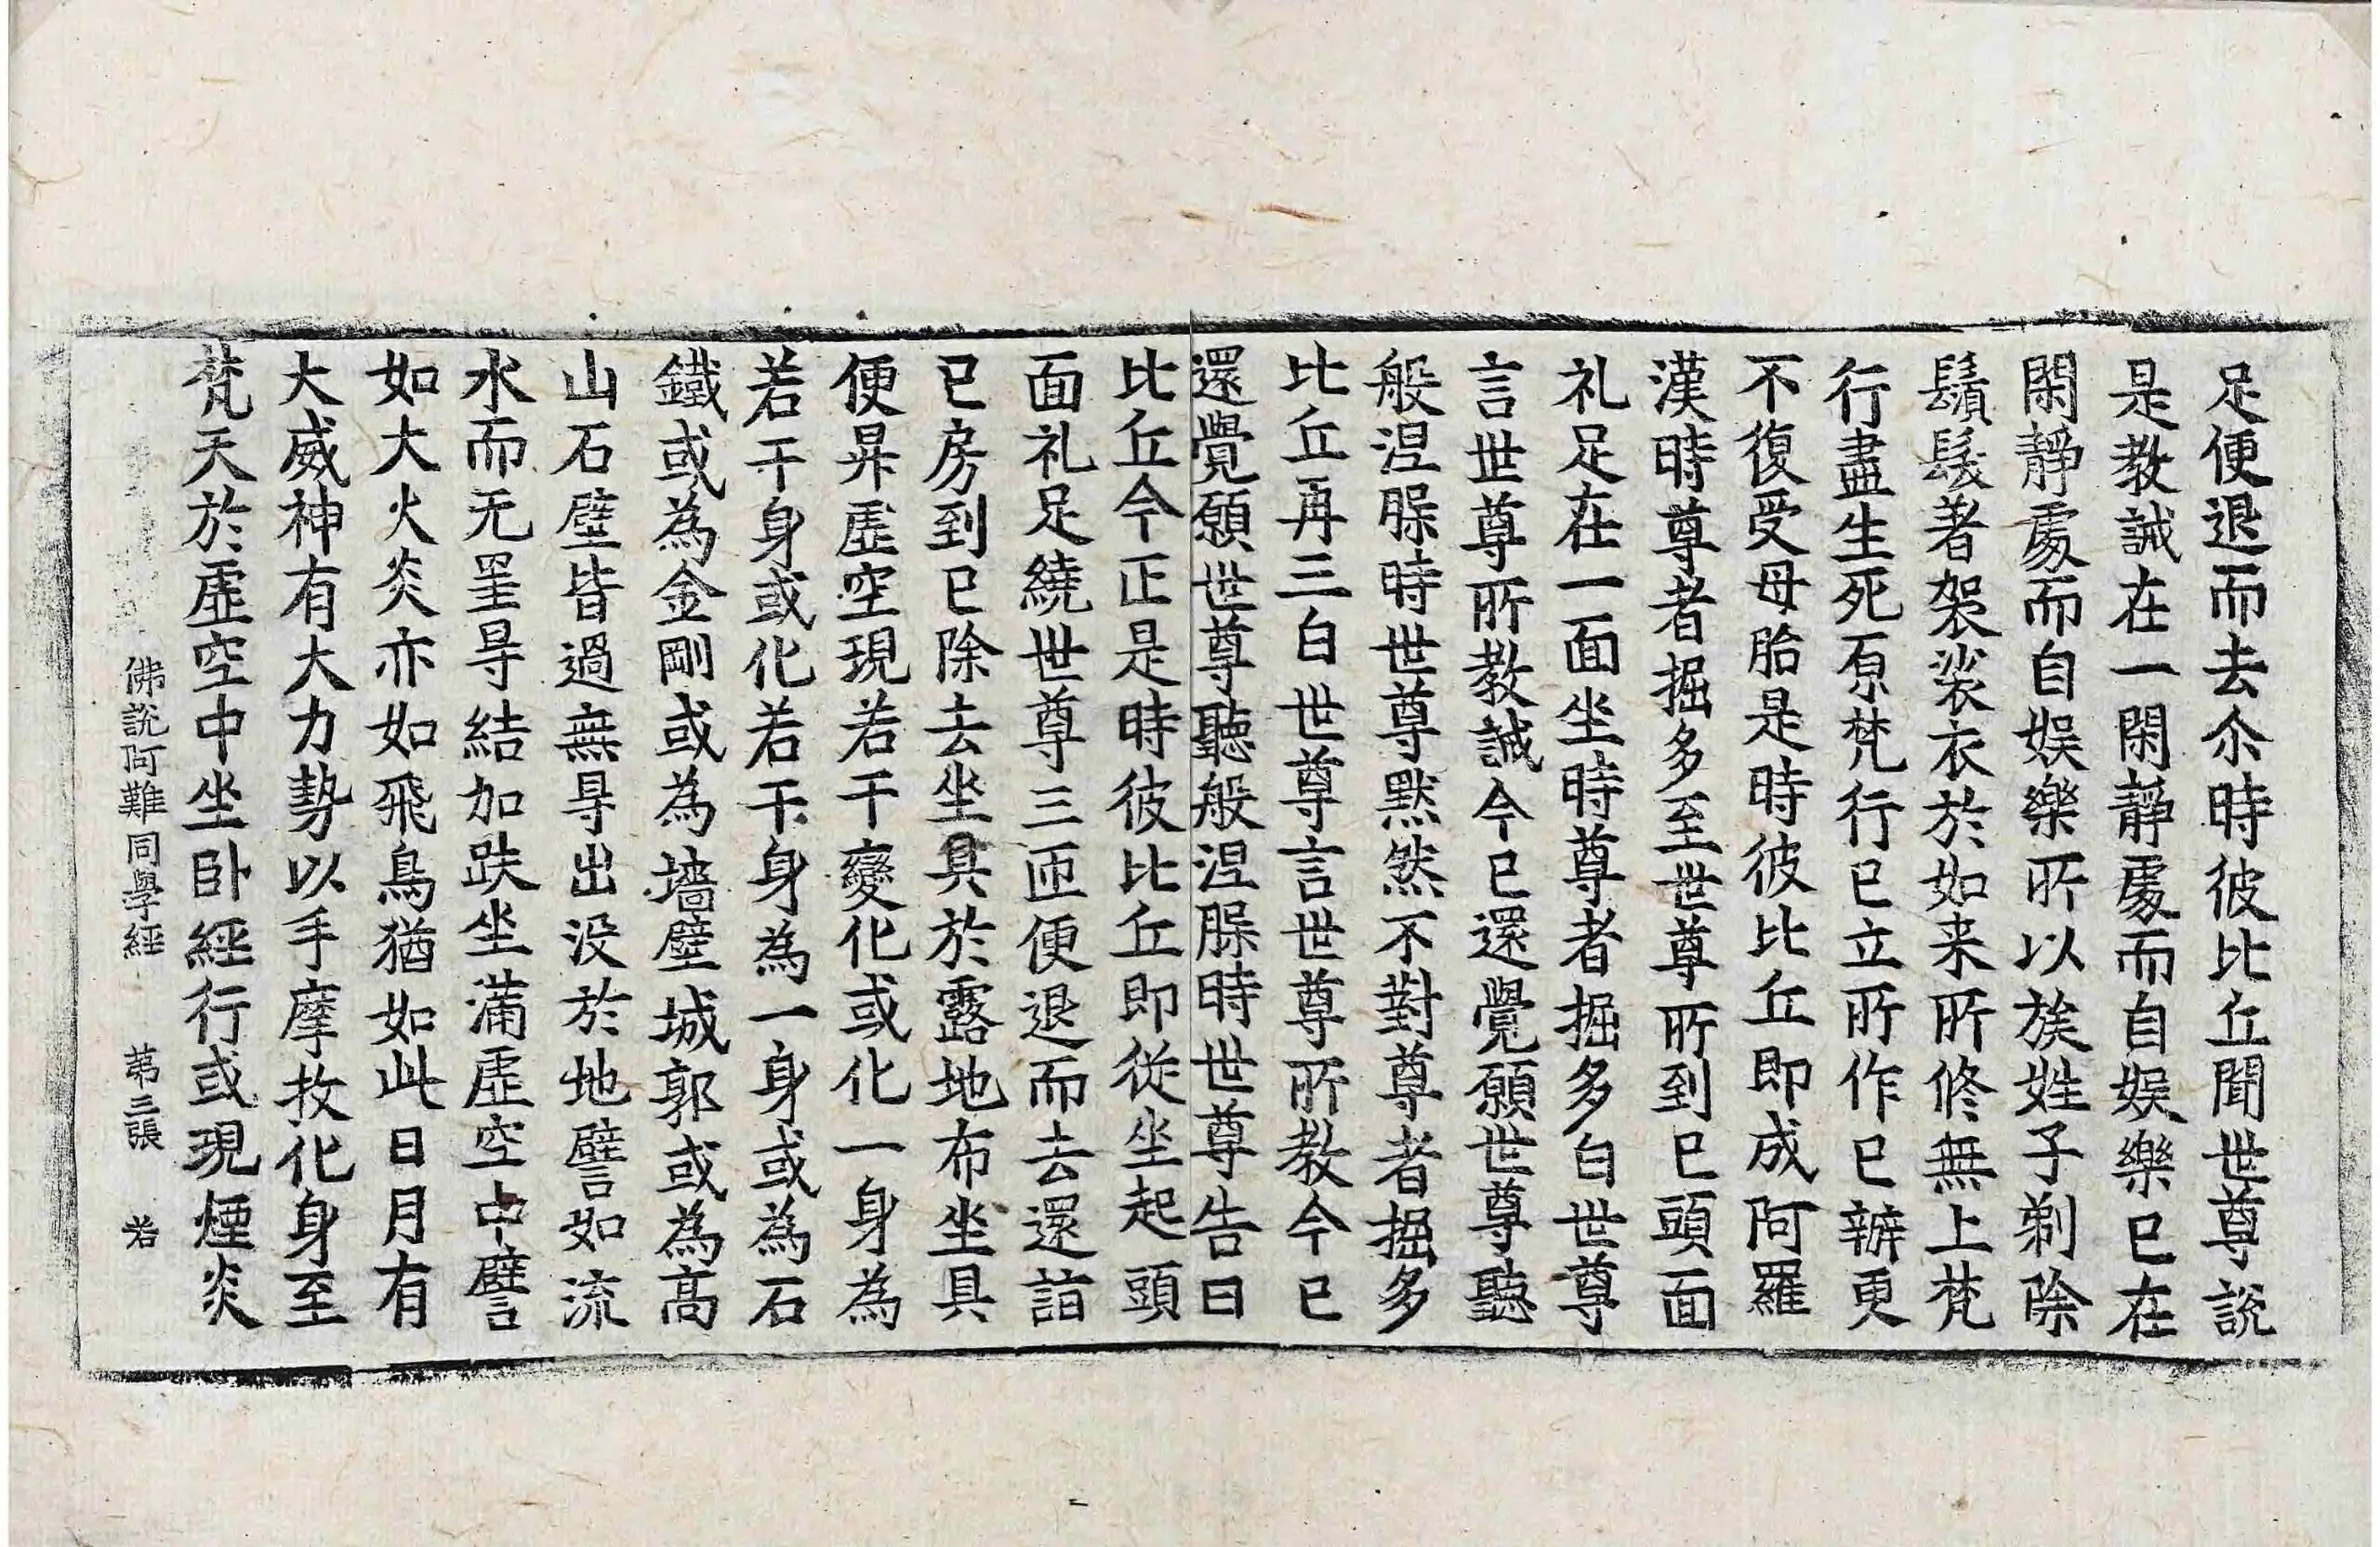 足便退而去尒時彼比丘聞世尊說
是教誡在一閑靜處而自娛樂已在
閑靜處而自娛樂所以族姓子剃除
鬚髮著袈裟衣於如来所修無上梵
行盡生死原梵行已立所作已辦更
不復受母胎是時彼比丘即成阿羅
漢時尊者掘多至世尊所到已頭面
礼足在一面坐時尊者掘多白世尊
言世尊所教誡今已還覺願世尊聽
般涅槃時世尊默然不對尊者掘多
比丘再三白世尊言世尊所教今已
還覺願世尊聽般涅槃時世尊告曰
比丘今正是時彼比丘即從坐起頭
面礼足繞世尊三匝便退而去還詣
已房到已除去坐具於露地布坐具
便昇虛空現若干變化或化一身為
若干身或化若干身為一身或為石
鐵或為金剛或為墻壁城郭或為高
山石壁皆過無㝵出没於地譬如流
水而无罣㝵結加趺坐滿虛空中譬
如大火炎亦如飛鳥猶如此日月有
大威神有大力勢以手摩抆化身至
梵天於虛空中坐卧經行或現煙炎
佛說阿難同學經 苐三張 若